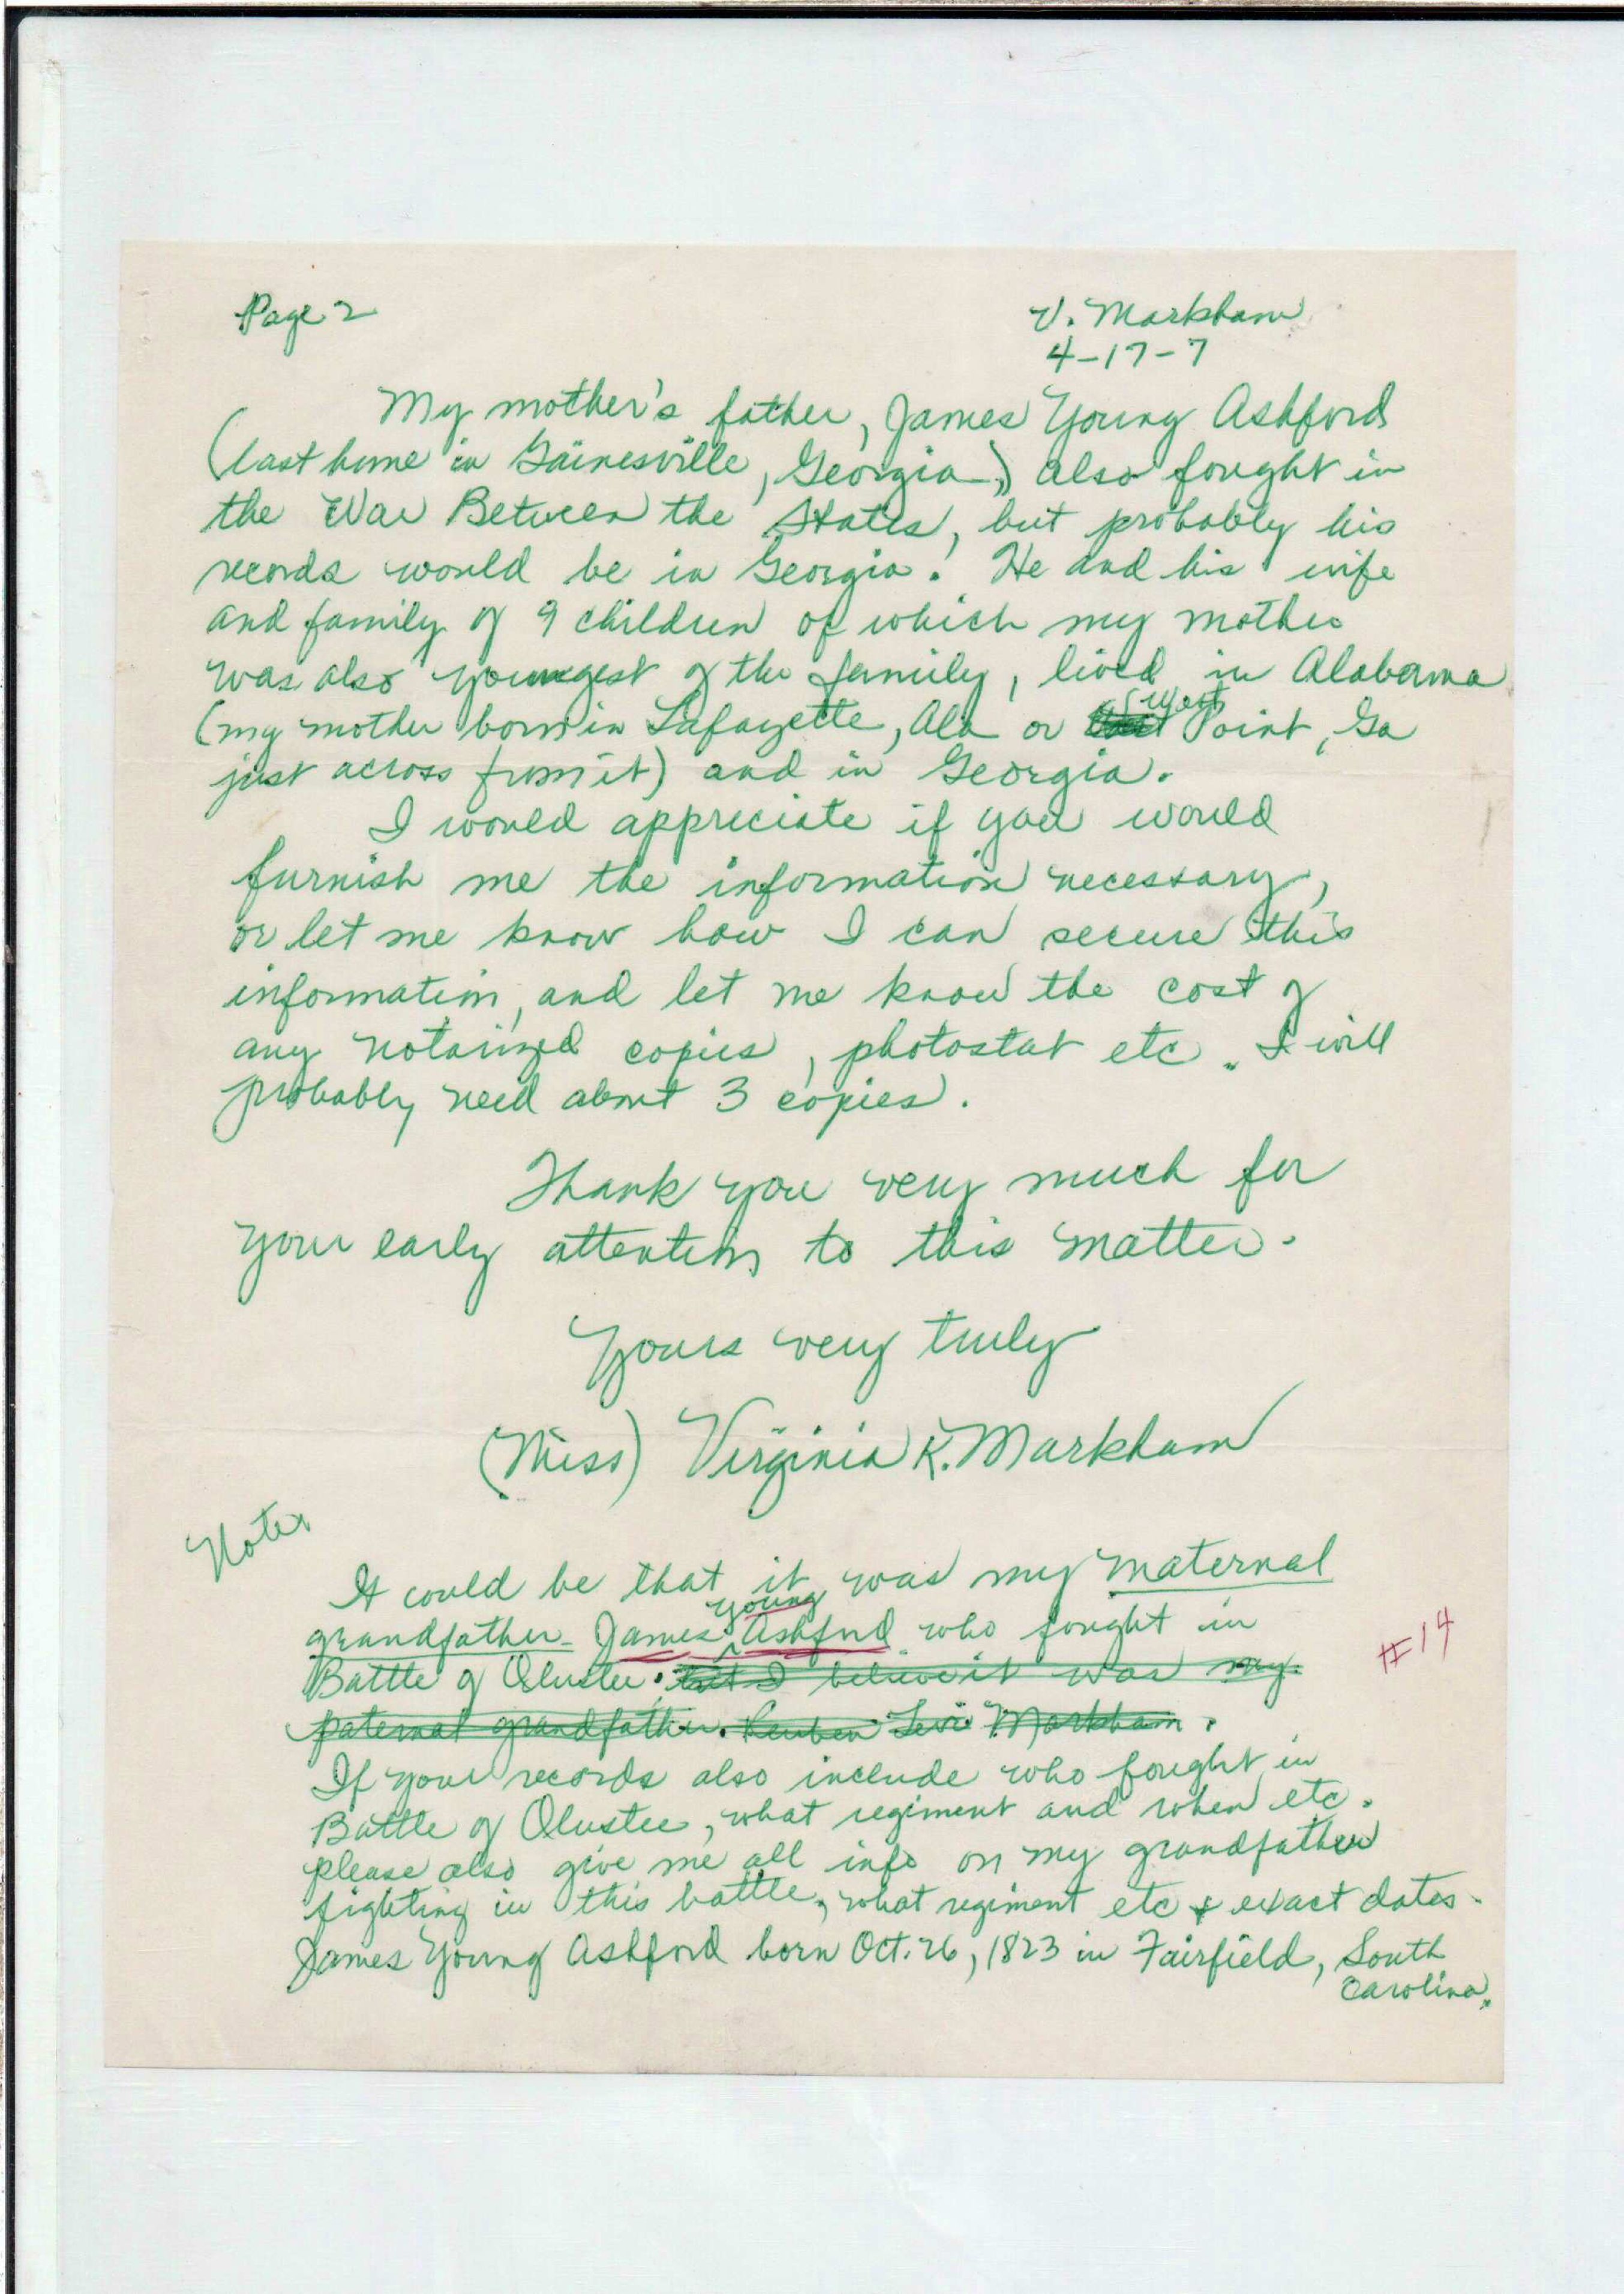 Page 2
V. Markham
4-17-7
My mother's father, James Young Ashford
(last home in Gainesville, Georgia,) also fought in
the War Between the States, but probably his
records would be in Georgia. He and his wife
and family of 9 children of which my mother
was also youngest of the family, lived in Alabama
(my mother born in Lafayette, Ala or West Point, Ga
just across from it) and in Georgia.
I would appreciate if you would
furnish me the information necessary,
or let me know how I can secure this
information, and let me know the cost of
any notarized copies, photostat etc. I will
probably need about 3 copies.
Thank you very much for
your early attention to this matter.
Yours very truly
(Miss) Virginia K. Markham
Note
It could be that it was my maternal
grandfather James Young Ashford who fought in
Battle of Olustee. but I believe it was my
paternal grandfather. Reuben Levi Markham.
#14
If your records also include who fought in
Battle of Olustee, what regiment and when etc.
please also give me all info on my grandfather
fighting in this battle, what regiment etc & exact dates.
James Young Ashford born Oct. 26, 1823 in Fairfield, South
Carolina.